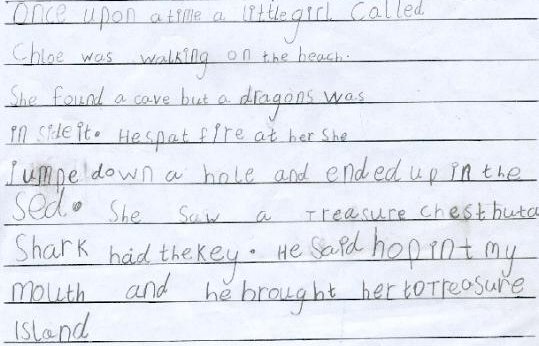 Once upon a time a little girl called
Chloe was walking on the beach.
She found a cave but a dragons was
in side it. He spat fire at her She
Jumpe down a hole and ended up in the
sea. She saw a treasure chest but a
Shark had the key. He said hop int my
mouth and he brought her to Treasure
Island